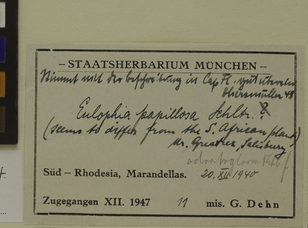 - STAATSHERBARIUM MÜNCHEN -
Stimmt mit der Beschreibung in Cap Fl.
Eulophia papillosa Schltr. ?
(seems to differ from the S. African plant)
Mr. Greatrex, Salisbury
Süd - Rhodesia, Marandellas. 20. XII 1940
Zugegangen XII. 1947 11 mis. G. Dehn